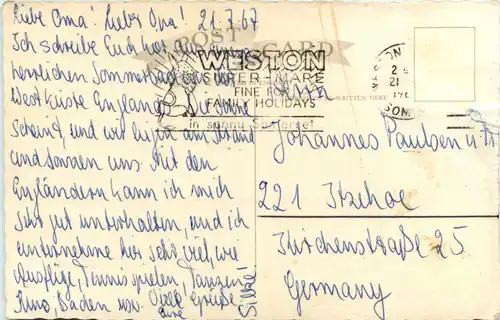 Liebe Oma! Lieber Opa! 21.7.67
Ich schreibe Euch hier aus
herrlichen Sommerbad an der
Westküste England
Scheint, und wir liegen am Strand
und sonnen uns. Mit den
Engländern kann ich mich
sehr gut unterhalten, und ich
unternehme hier sehr viel, wie
Ausflüge, Tennisspielen, Tanzen
Kino, Baden usw. Viele Grüße
Eure
Silke!
POST CARD
WESTON
SUPER-MARE
FINE FOR
FAMILY HOLIDAYS
in sunny Somerset
WRITTEN HERE
21
SOM
Johannes Paulsen u. Fr.
221 Itzehoe
Kirchenstraße 25
Germany